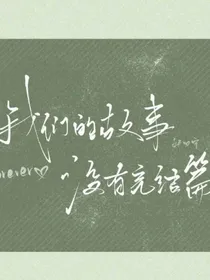 我们的故事
forever♡
没有完结篇